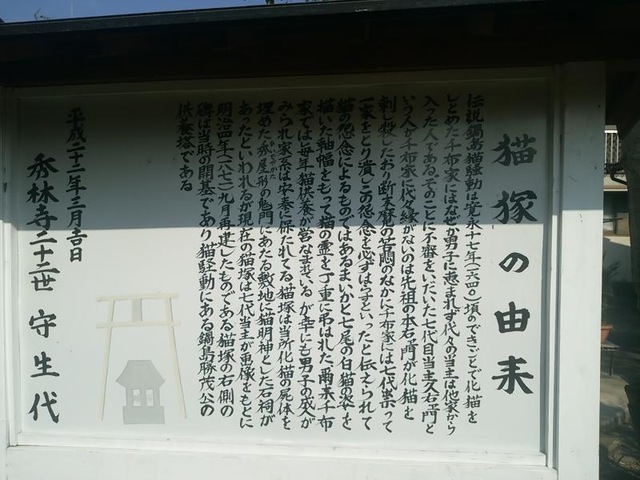 猫塚の由来
伝説鍋島猫騒動は寛永十七年(一六四〇)頃のできごとで化猫を
しとめた千布家にはなぜか男子に恵まれず代々の当主は他家から
入った人である。そのことに不審をいだいた七代目当主久右ヱ門と
いう人が千布家に代々男子の縁がないのは先祖の本右ヱ門が化猫を
刺し殺したおり断末魔の苦悶のなかに千布家には七代祟って
一家をとり潰しこの怨念を必ずはらすといったと伝えられて
猫の怨念によるものではあるまいかと七尾の白猫の姿を
描いた軸幅をもって猫の霊を丁重に弔はれた 爾来千布
家では毎年猫供養が営なまれている が幸にも男子の成人が
みられ家系は安泰に保たれてる 猫塚は当所化猫の屍体を
埋めた秀屋形の鬼門にあたる敷地に猫明神とした石祠が
あったといわれるが現在の猫塚は七代当主が画像をもとに
明治四年(一八七一)九月再建したものである 猫塚の右側の
碑は当時の開基であり猫騒動にある鍋島勝茂公の
供養塔である
平成二十二年三月吉日
秀林寺二十二世 守生代